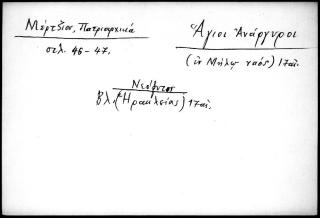 Μέρτζιος, Πατριαρχικά
σελ. 46-47.
Ἅγιοι Ἀνάργυροι
(ἐν Μήλῳ ναός) 17 αἰ.
Νεόφυτος
βλ. (Ἡρακλείας) 17 αἰ.